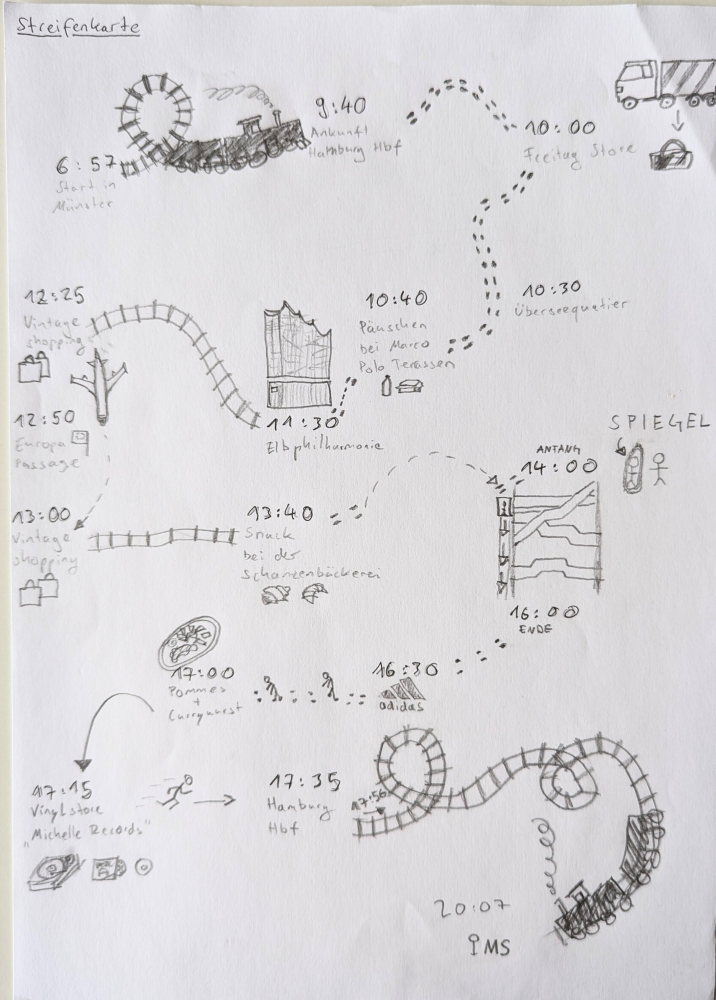 Streifenkarte
9:40
Ankunft
Hamburg Hbf
10:00
Freitag Store
6:57
Start in
Münster
12:25
Vintage
shopping
10:40
Päuschen
bei Marco
Polo Terassen
10:30
Überseequatier
12:50
Europa
Passage
11:30
Elbphilharmonie
SPIEGEL
ANFANG
14:00
13:00
Vintage
shopping
13:40
Snack
bei der
Schanzenbäckerei
16:00
ENDE
17:00
Pommes
+
Currywurst
16:30
adidas
17:15
Vinylstore
„Michelle Records"
17:35
Hamburg
Hbf
17:56
20:07
MS